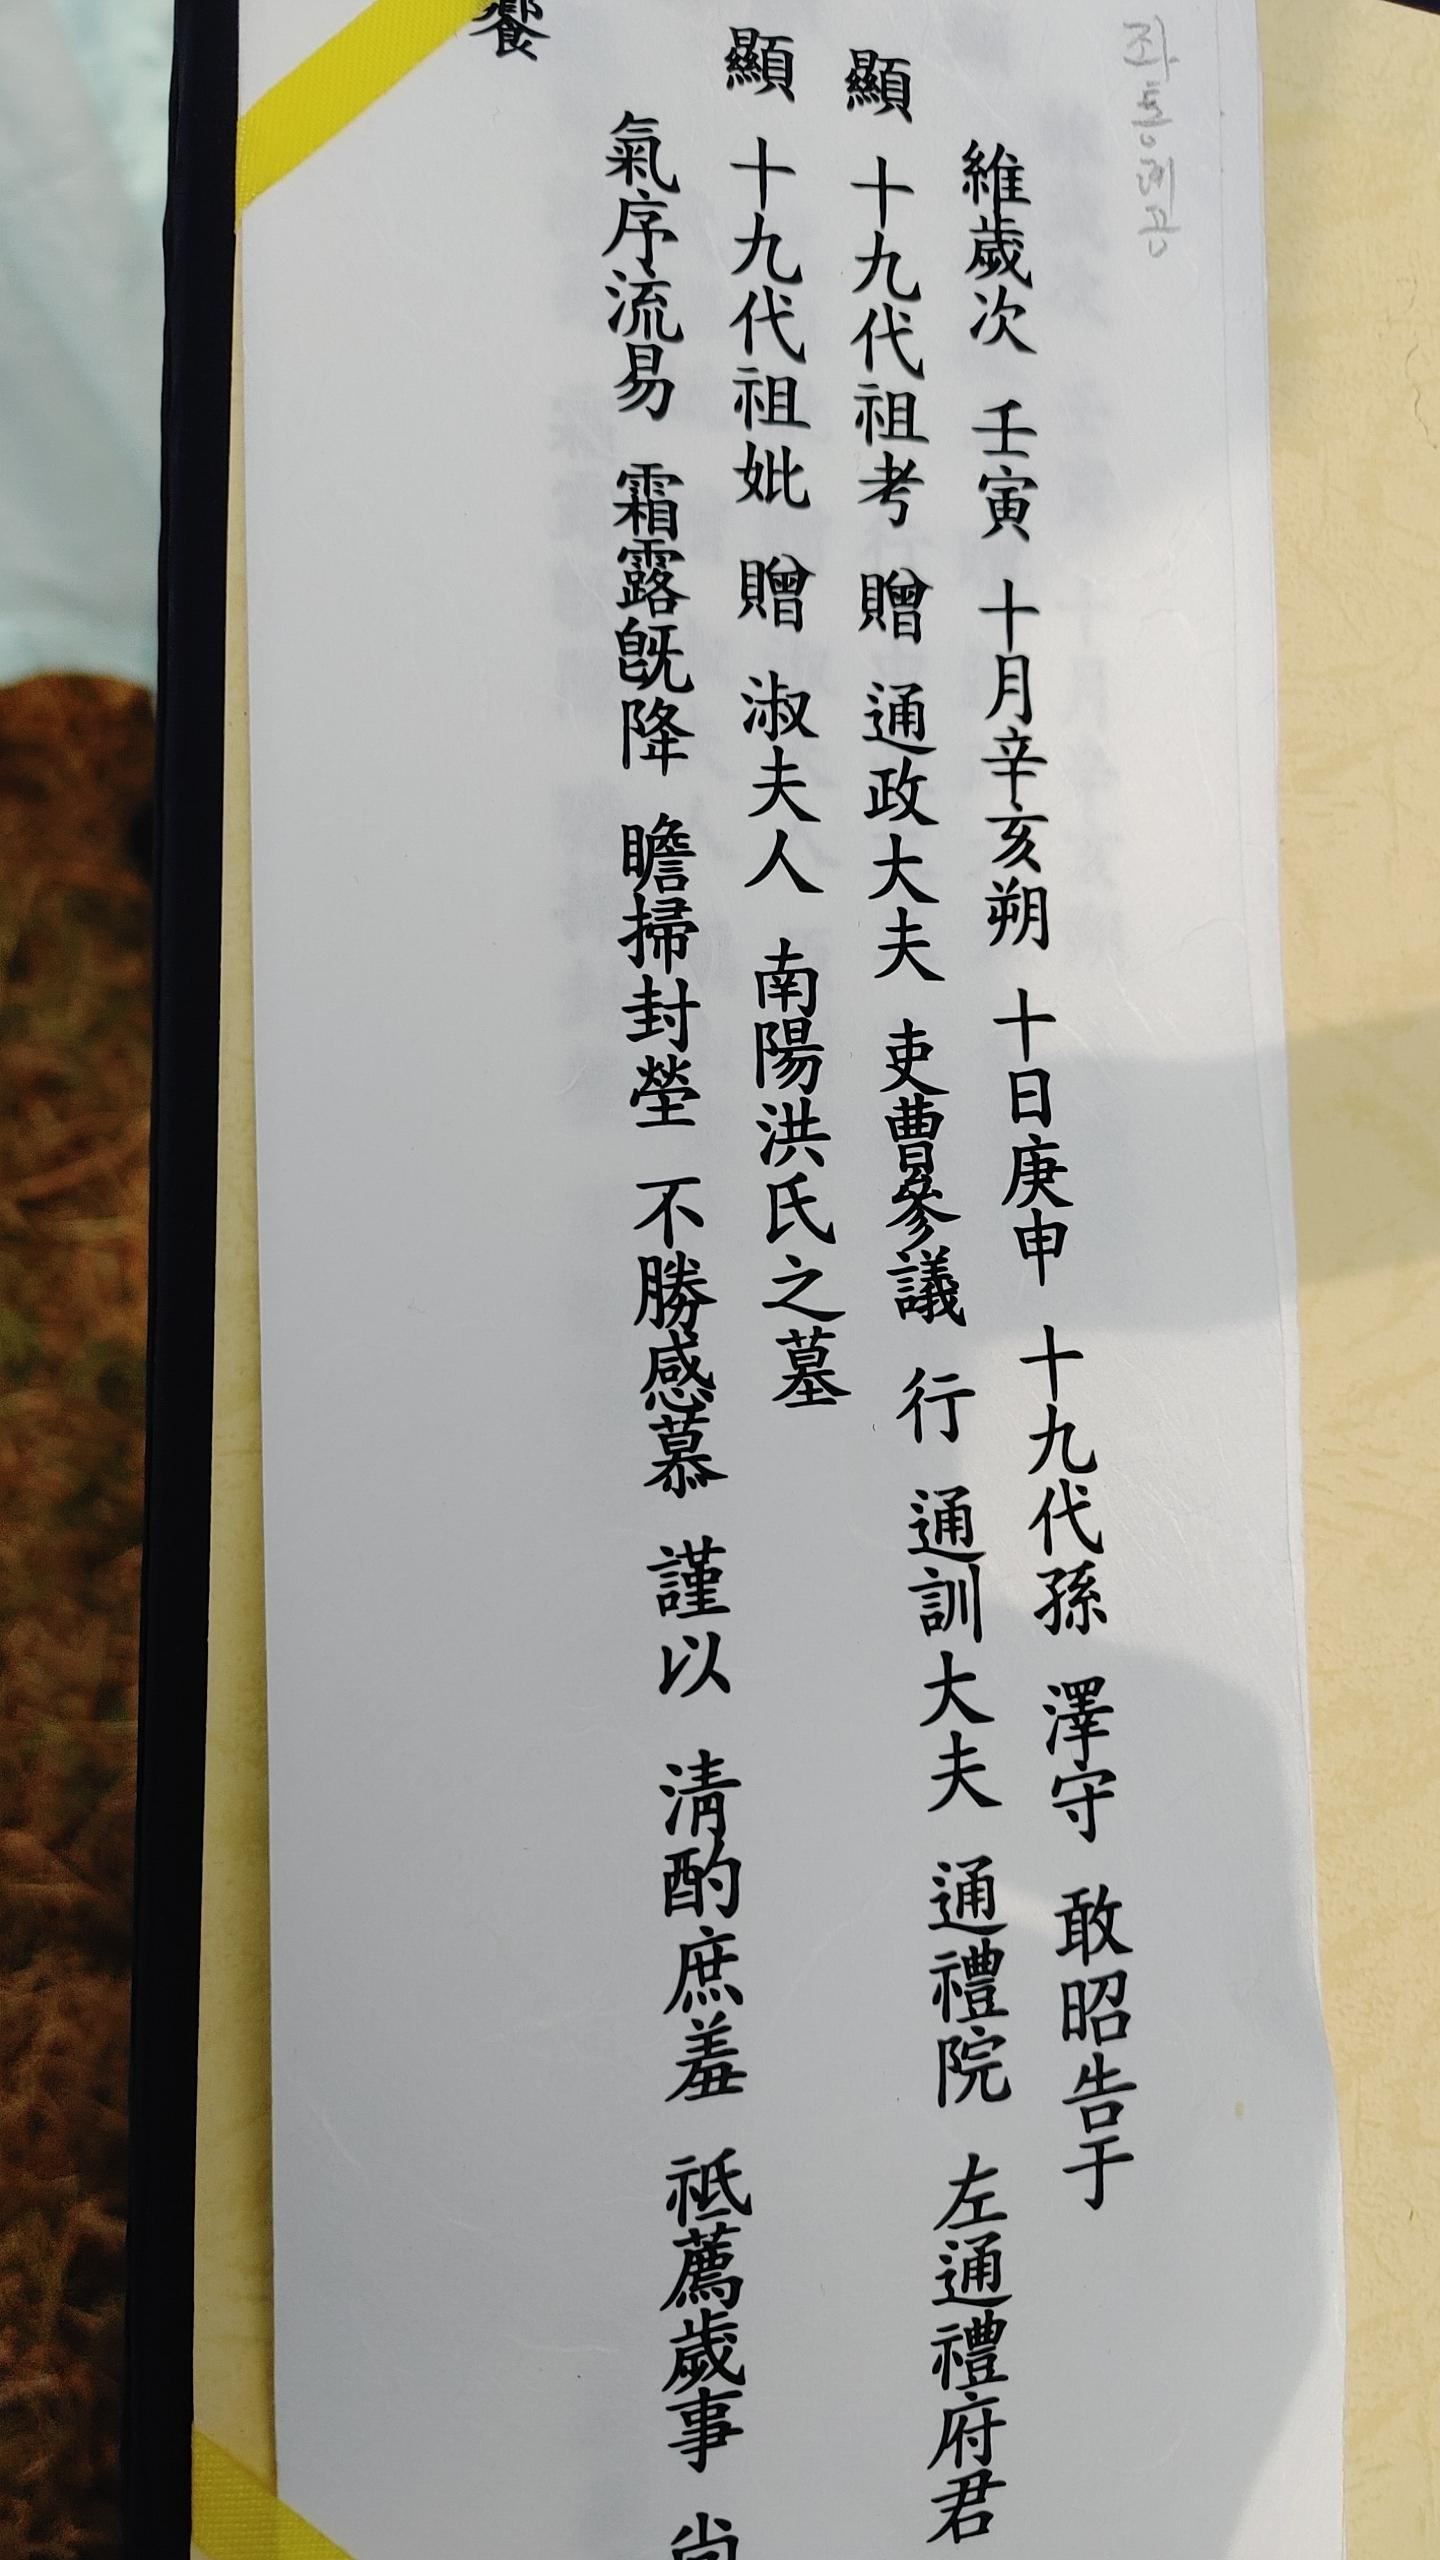 좌통례공
維歲次 壬寅 十月辛亥朔 十日庚申 十九代孫 澤守 敢昭告于
顯 十九代祖考 贈 通政大夫 吏曹參議 行 通訓大夫 通禮院 左通禮府君
顯 十九代祖妣 贈 淑夫人 南陽洪氏之墓
氣序流易 霜露旣降 瞻掃封塋 不勝感慕 謹以 淸酌庶羞 祗薦歲事 尙
饗